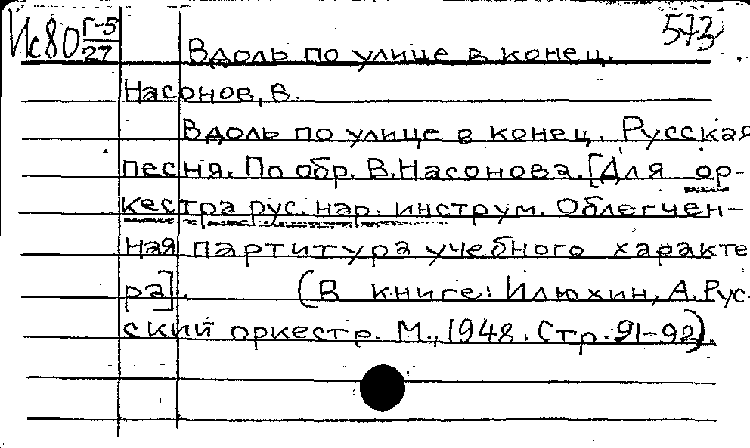 Ис80 Г-5/27
573
Вдоль по улице в конец.
Насонов, В.
Вдоль по улице в конец. Русская
песня. По обр. В. Насонова. [Для ор-
кестра рус. нар. инструм. Облегчен-
ная партитура учебного характе
ра]. (В книге: Илюхин, А. Рус-
ский оркестр. М., 1948. Стр. 91-92).